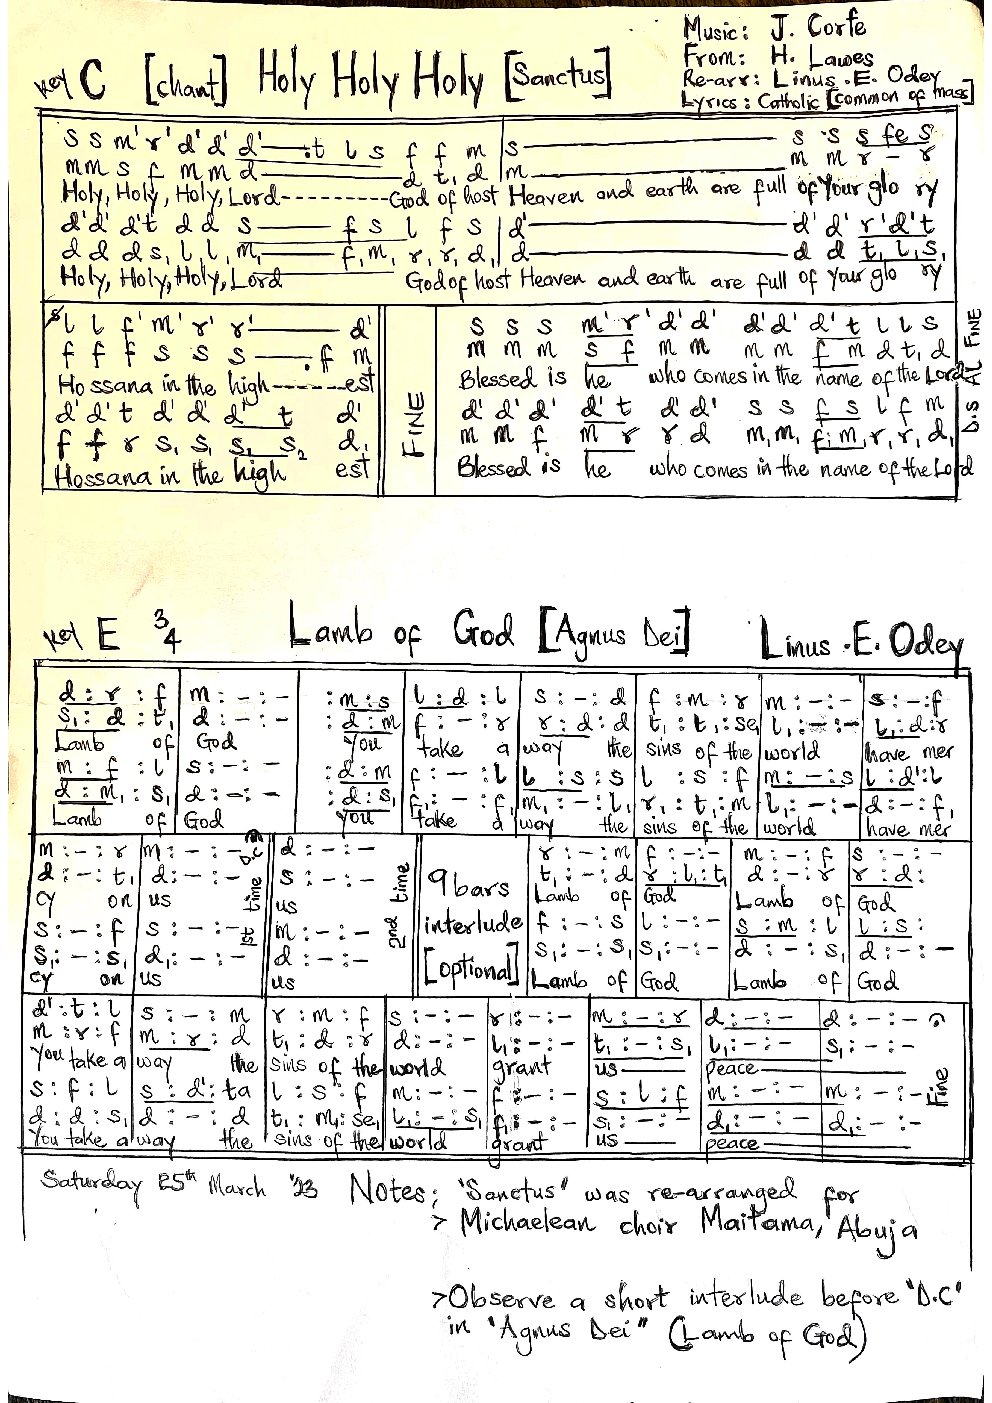 Music: J. Corfe
From: H. Lawes
Re-arr: Linus .E. Odey
Lyrics: Catholic [common of mass]
Key C [chant] Holy Holy Holy [Sanctus]
s s m' r' d' d' d'———.t l s f f m | s——————— s s s fe s
m m s f m m d——— d t, d | m——————— m m r – r
Holy, Holy, Holy, Lord---------God of host Heaven and earth are full of Your glo ry
d' d' d't d d s——— f s l f s | d'——————— d' d' r'd't
d d ds, l, l, m,——— f,m, r, r, d, | d——————— d d t,l,s,
Holy, Holy, Holy, Lord God of host Heaven and earth are full of Your glo ry
l l f' m' r' r'——— d'
f f f s s s——.f m
Hossana in the high------est
d' d' t d' d' d' t d'
f f r s, s, s, s₂ d,
Hossana in the high est
FINE
s s s m' r' d' d' d' d' d' t l l s
m m m s f m m m m f m d t, d
Blessed is he who comes in the name of the Lord
d' d' d' d' t d' d' s s f s l f m
m m f m r r d m, m, f, m, r, r, d,
Blessed is he who comes in the name of the Lord
D.S AL FINE
Key E 3/4 Lamb of God [Agnus Dei] Linus .E. Odey
d : r : f | m : - : - | : m : s | l : d : l | s : - : d | f : m : r | m : - : - | s : - : f
s, : d : t, | d : - : - | : d : m | f : - : r | r : d : d | t, : t, : se, | l, : - : - | l, : d : r
Lamb of God You take a way the sins of the world have mer
m : f : l | s : - : - | : d : m | f : - : l | l : s : s | l : s : f | m : - : s | l : d' : l
d : m, : s, | d : - : - | : d : s, | f, : - : f, | m, : - : l, | r, : t, : m | l, : - : - | d : - : f,
Lamb of God You take a way the sins of the world have mer
m : - : r | m : - : - | d : - : - | r : - : m | f : - : - | m : - : f | s : - : -
d : - : t, | d : - : - | s : - : - | t, : - : d | r : l, : t, | d : - : r | r : d :
cy on us us Lamb of God Lamb of God
1st time D.C
2nd time
9 bars
interlude
[optional]
s : - : f | s : - : - | m : - : - | f : - : s | l : - : - | s : m : l | l : s :
s, : - : s, | d, : - : - | d : - : - | s, : - : s, | s, : - : - | d : - : s, | d : - : -
cy on us us Lamb of God Lamb of God
d' : t : l | s : - : m | r : m : f | s : - : - | r : - : - | m : - : r | d : - : - | d : - : -
m : r : f | m : r : d | t, : d : r | d : - : - | l, : - : - | t, : - : s, | l, : - : - | s, : - : -
You take a way the sins of the world grant us——— peace———
s : f : l | s : d' : ta | l : s : f | m : - : - | f : - : - | s : l : f | m : - : - | m : - : -
d : d : s, | d : - : d | t, : m, : se, | l, : - : s, | f, : - : - | s, : - : - | d, : - : - | d, : - : -
You take a way the sins of the world grant us —— peace———
Fine
Saturday 25th March '23 Notes; "Sanctus" was re-arranged for
> Michaelean choir Maitama, Abuja
>Observe a short interlude before "D.C"
in "Agnus Dei" (Lamb of God)